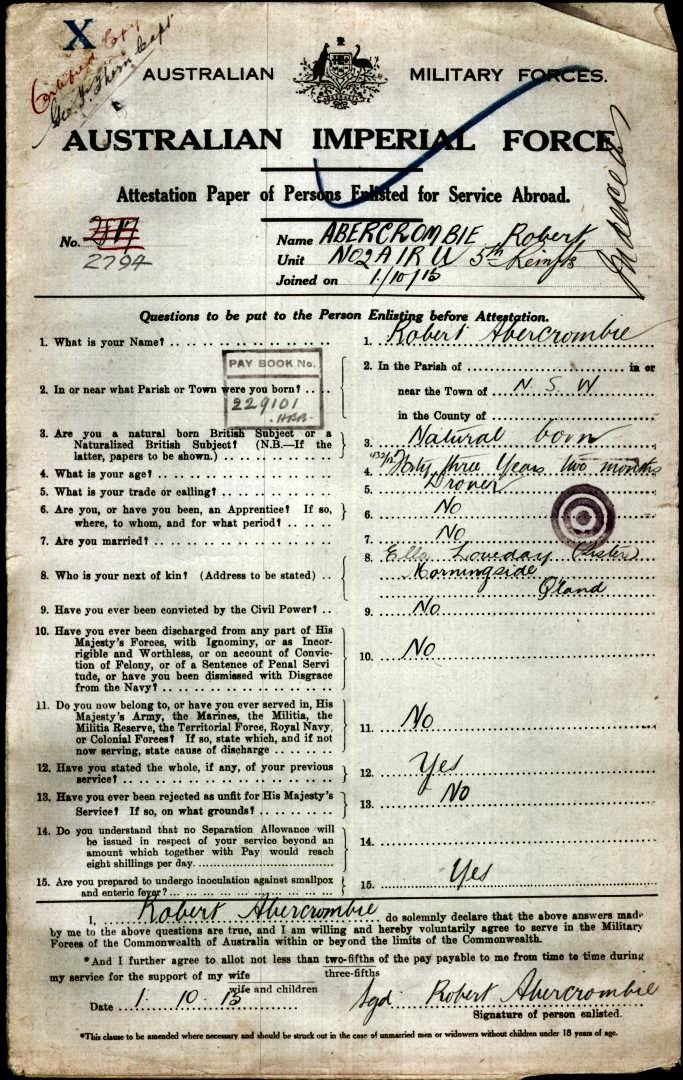 X
Certified Copy
Capt
AUSTRALIAN MILITARY FORCES.
AUSTRALIAN IMPERIAL FORCE
Attestation Paper of Persons Enlisted for Service Abroad.
No. 2794
Name ABERCROMBIE Robert
Unit No 2 A I R U 5th Remfts
Joined on 1/10/15
Questions to be put to the Person Enlisting before Attestation.
1. What is your Name? 1. Robert Abercrombie
PAY BOOK No.
229101
2. In or near what Parish or Town were you born? 2. In the Parish of in or
near the Town of N S W
in the County of
3. Are you a natural born British Subject or a
Naturalized British Subject? (N.B.—If the
latter, papers to be shown.) 3. Natural born
4. What is your age? 4. Forty three Years two months
5. What is your trade or calling? 5. Drover
6. Are you, or have you been, an Apprentice? If so,
where, to whom, and for what period? 6. No
7. Are you married? 7. No
8. Who is your next of kin? (Address to be stated) 8. Ella Loveday (Sister)
Morningside
Qland
9. Have you ever been convicted by the Civil Power? 9. No
10. Have you ever been discharged from any part of His
Majesty's Forces, with Ignominy, or as Incor-
rigible and Worthless, or on account of Convic-
tion of Felony, or of a Sentence of Penal Servi
tude, or have you been dismissed with Disgrace
from the Navy? 10. No
11. Do you now belong to, or have you ever served in, His
Majesty's Army, the Marines, the Militia, the
Militia Reserve, the Territorial Force, Royal Navy,
or Colonial Forces? If so, state which, and if not
now serving, state cause of discharge 11. No
12. Have you stated the whole, if any, of your previous
service? 12. Yes
13. Have you ever been rejected as unfit for His Majesty's
Service? If so, on what grounds? 13. No
14. Do you understand that no Separation Allowance will
be issued in respect of your service beyond an
amount which together with Pay would reach
eight shillings per day. 14.
15. Are you prepared to undergo inoculation against smallpox
and enteric fever? 15. Yes
I, Robert Abercrombie do solemnly declare that the above answers made
by me to the above questions are true, and I am willing and hereby voluntarily agree to serve in the Military
Forces of the Commonwealth of Australia within or beyond the limits of the Commonwealth.
*And I further agree to allot not less than two-fifths of the pay payable to me from time to time during
three-fifths
my service for the support of my wife
wife and children
Date 1. 10. 15 Sgd Robert Abercrombie
Signature of person enlisted.
*This clause to be amended where necessary and should be struck out in the case of unmarried men or widowers without children under 18 years of age.